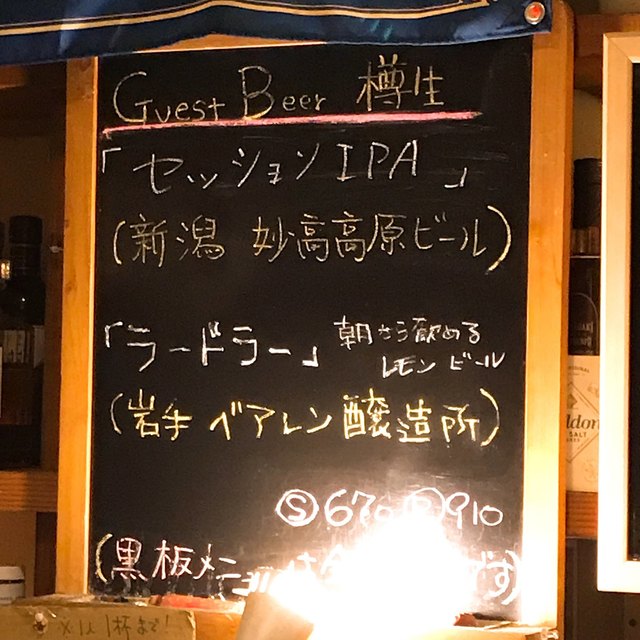 Guest Beer 樽生
「セッションIPA」
(新潟 妙高高原ビール)
「ラードラー」 朝から飲める
レモン ビール
(岩手 ベアレン醸造所)
Ⓢ670 910
(黒板メニュー です)
1杯まで!